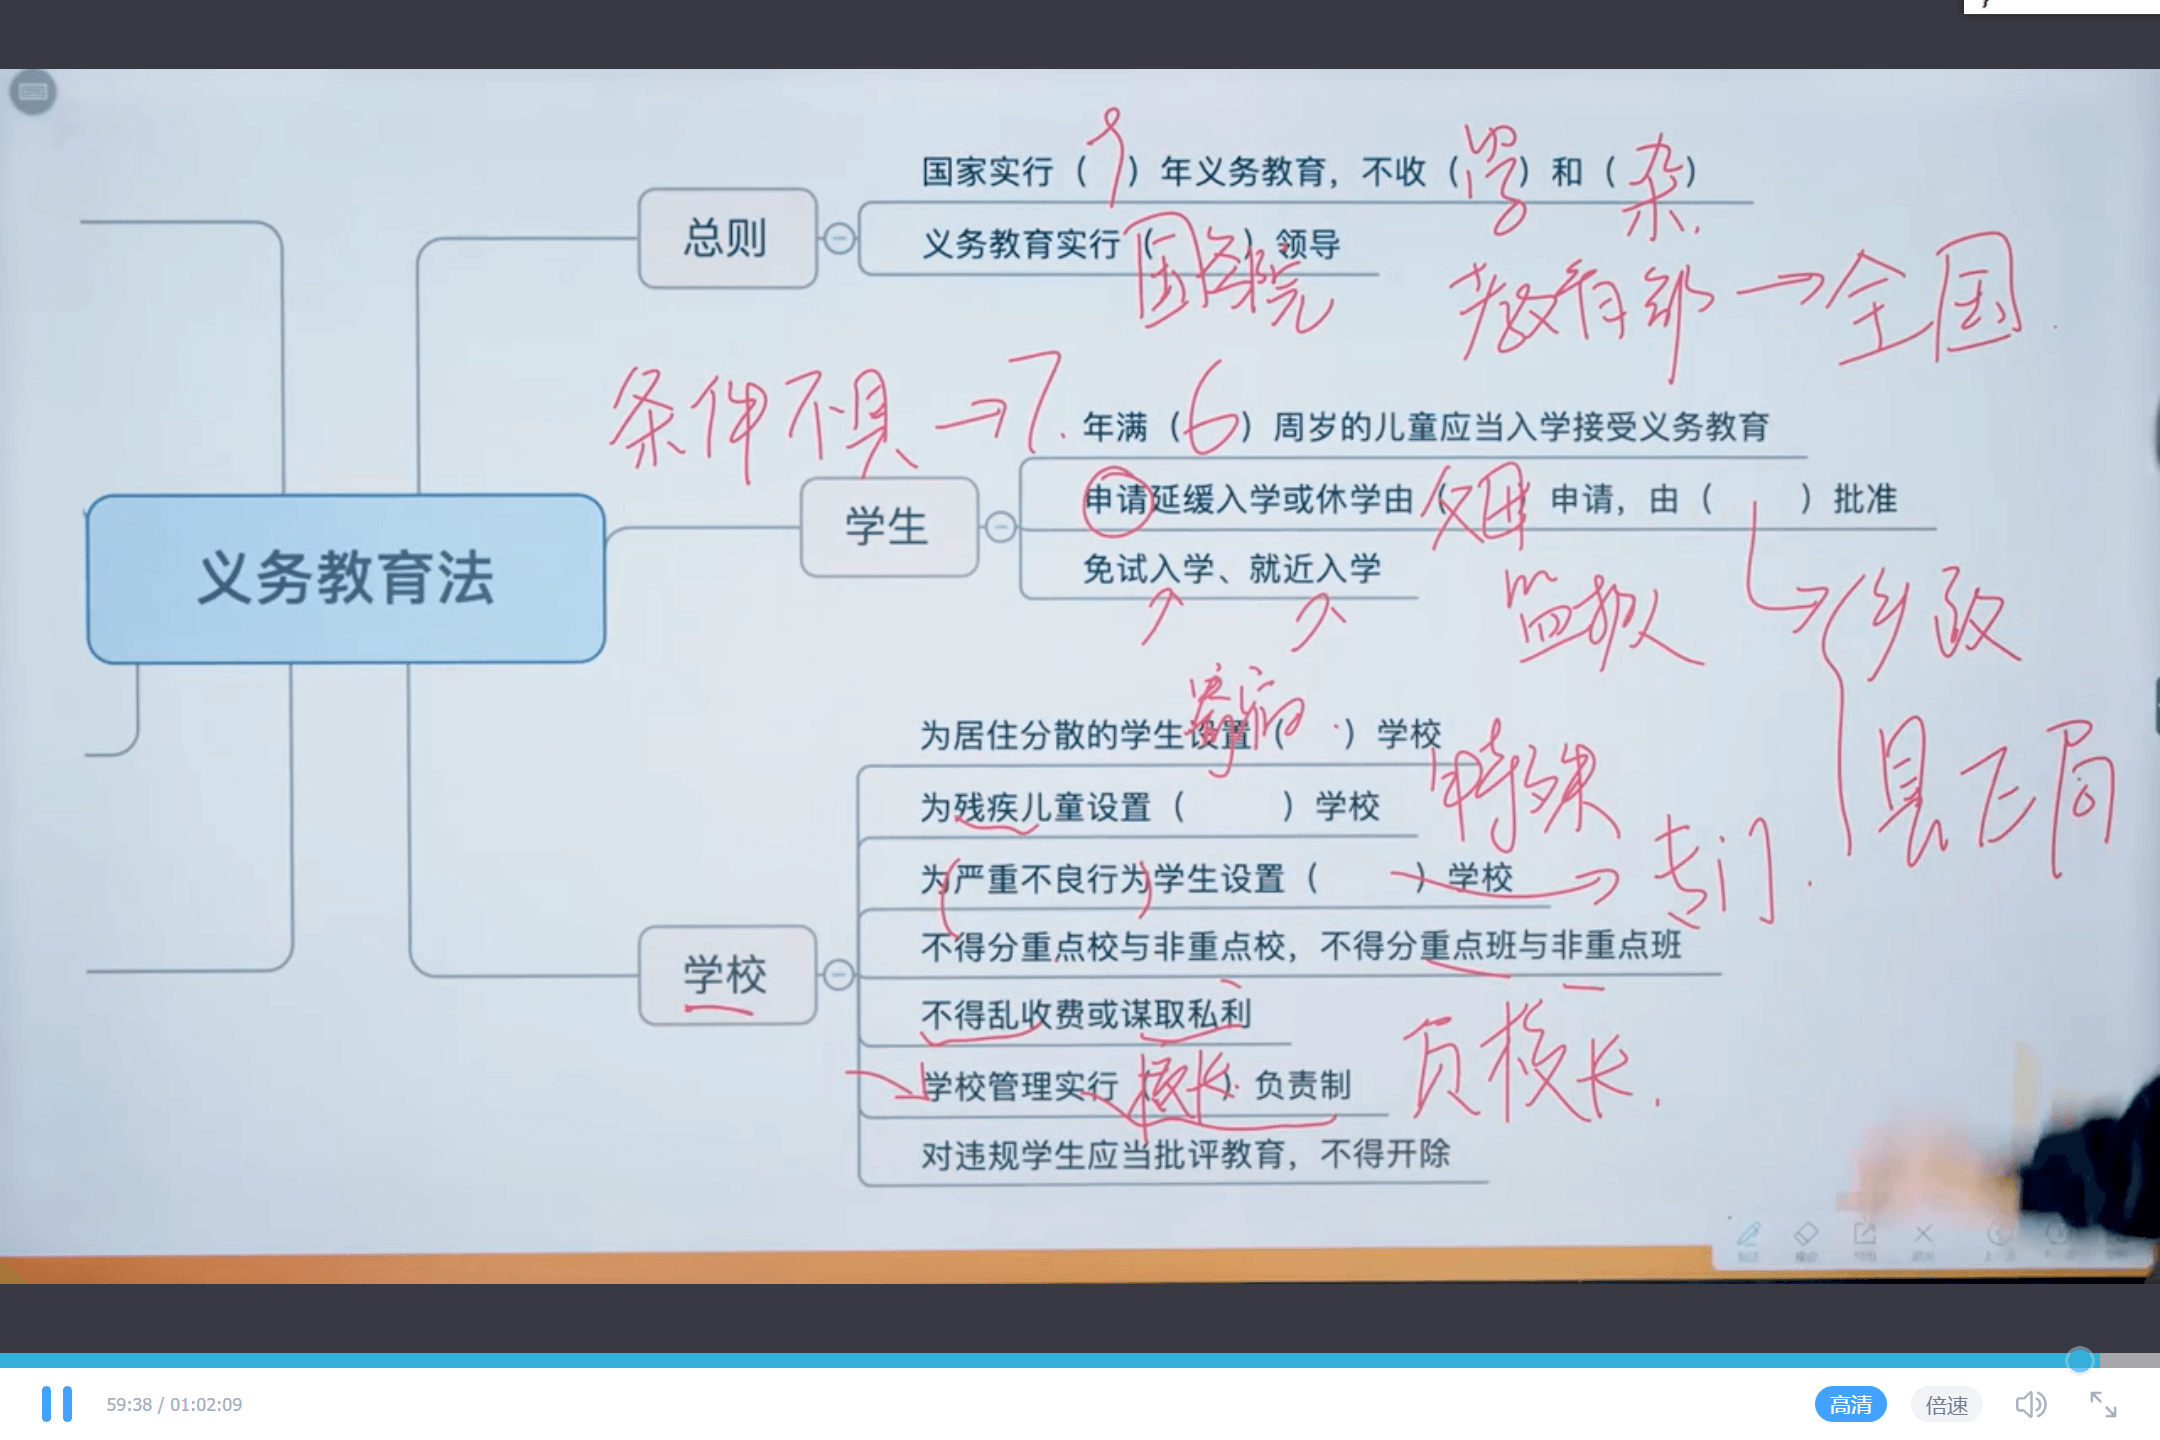 国家实行（9）年义务教育，不收（学）和（杂）
义务教育实行（国务院）领导
教育部→全国
条件不具→7.
年满（6）周岁的儿童应当入学接受义务教育
总则
申请延缓入学或休学由（父母 申请，由（ ）批准
监护人
乡政
县 局
免试入学、就近入学
学生
义务教育法
为居住分散的学生设置（寄宿）学校
为残疾儿童设置（ ）学校 特殊
为严重不良行为学生设置（ ）学校→专门
不得分重点校与非重点校，不得分重点班与非重点班
学校
不得乱收费或谋取私利
学校管理实行（校长）负责制 校长
对违规学生应当批评教育，不得开除
59:38 / 01:02:09
高清
倍速